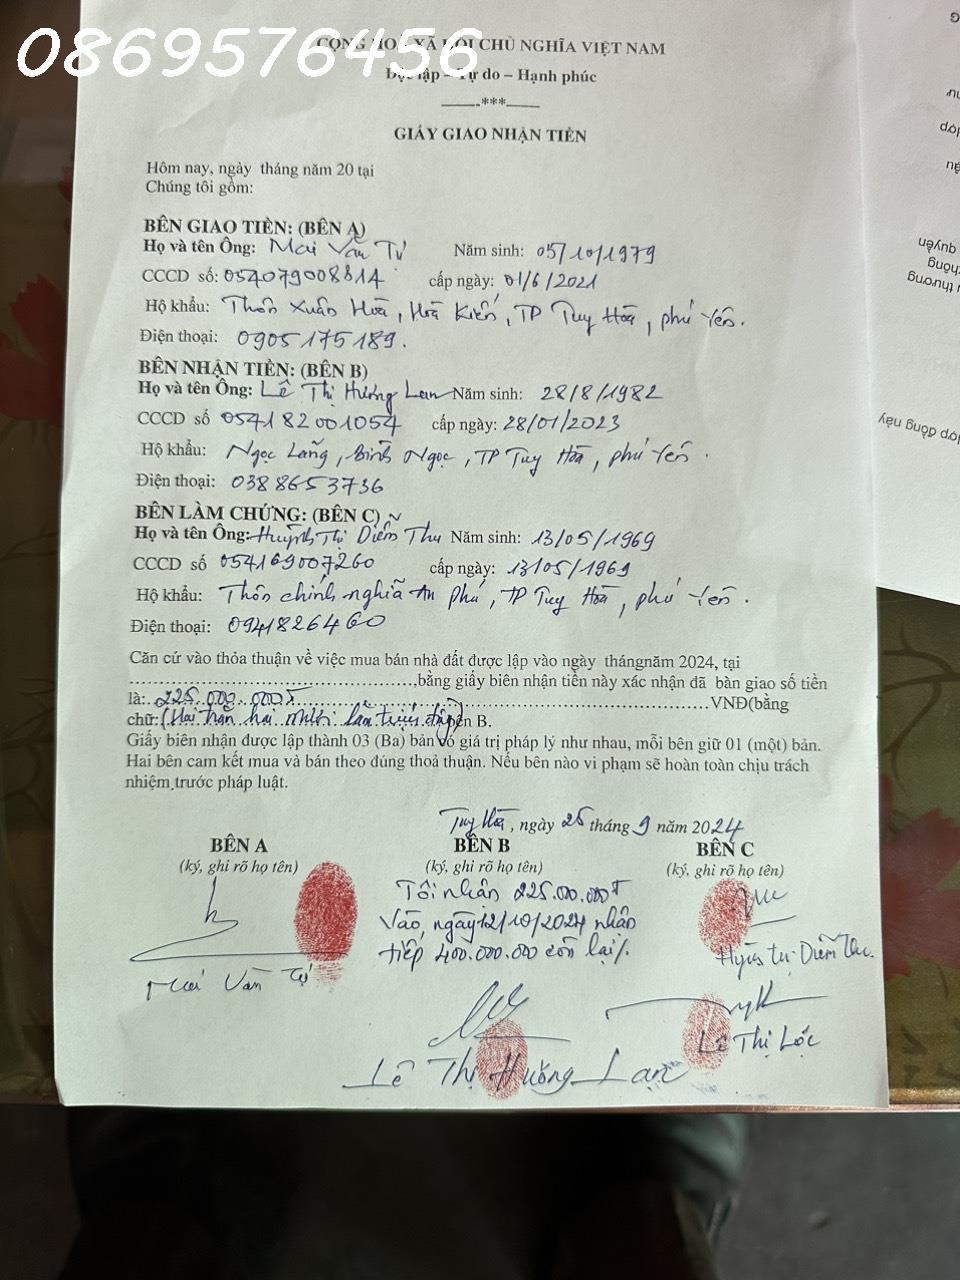 0869576456
CỘNG HOÀ XÃ HỘI CHỦ NGHĨA VIỆT NAM
Độc lập – Tự do – Hạnh phúc
***
GIẤY GIAO NHẬN TIỀN
Hôm nay, ngày tháng năm 20 tại
Chúng tôi gồm:
BÊN GIAO TIỀN: (BÊN A)
Họ và tên Ông: Mai Văn Tự Năm sinh: 05/10/1979
CCCD số: 054079008814 cấp ngày: 01/6/2021
Hộ khẩu: Thôn Xuân Hoà, Hoà Kiến, TP Tuy Hoà, phú Yên.
Điện thoại: 0905175189.
BÊN NHẬN TIỀN: (BÊN B)
Họ và tên Ông: Lê Thị Hương Lan Năm sinh: 28/8/1982
CCCD số 054182001054 cấp ngày: 28/01/2023
Hộ khẩu: Ngọc Lãng, Bình Ngọc, TP Tuy Hoà, phú Yên.
Điện thoại: 0388653736
BÊN LÀM CHỨNG: (BÊN C)
Họ và tên Ông: Huỳnh Thị Diễm Thu Năm sinh: 13/05/1969
CCCD số 054169007260 cấp ngày: 13/05/1969
Hộ khẩu: Thôn chính nghĩa An Phú, TP Tuy Hoà, phú Yên.
Điện thoại: 0941826460
Căn cứ vào thỏa thuận về việc mua bán nhà đất được lập vào ngày thángnăm 2024, tại
,bằng giấy biên nhận tiền này xác nhận đã bàn giao số tiền
là: 225.000.000đ VNĐ(bằng
chữ: (Hai trăm hai mươi lăm triệu đồng) ên B.
Giấy biên nhận được lập thành 03 (Ba) bản có giá trị pháp lý như nhau, mỗi bên giữ 01 (một) bản.
Hai bên cam kết mua và bán theo đúng thoả thuận. Nếu bên nào vi phạm sẽ hoàn toàn chịu trách
nhiệm trước pháp luật.
Tuy Hoà, ngày 25 tháng 9 năm 2024
BÊN A BÊN B BÊN C
(ký, ghi rõ họ tên) (ký, ghi rõ họ tên) (ký, ghi rõ họ tên)
Tôi nhận 225.000.000đ
Vào, ngày 12/10/2024 nhận
tiếp 400.000.000 còn lại/.
Mai Văn Tự
Thị Diễm Thu.
Lê Thị Lộc
Lê Thị Hương Lan
quyền
hương
ợp đồng này